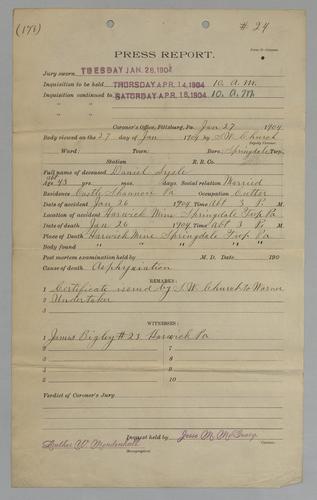 (178) # 24
PRESS REPORT.
Jury sworn TUESDAY JAN. 26, 1904
Inquisition to be held THURSDAY APR. 14, 1904 10. a.m.
Inquisition continued to SATURDAY APR. 16, 1904 10. a.m
" "
" "
Coroner's Office, Pittsburg, Pa. Jan 27 1904
Body viewed on the 27 day of Jan 1904 by S.W. Church
Deputy Coroner.
Ward: Town: Boro: Springdale Twp.
Station R. R. Co.
Full name of deceased Daniel Lyle
Age abt 43 yrs. mos. days. Social relation Married
Residence Castle Shannon Pa Occupation Cutter
Date of accident Jan 25 1904 Time abt 3 P. M.
Location of accident Harwick Mine Springdale Twp Pa
Date of death Jan 25 1904 Time abt 3 P. M.
Place of Death Harwick Mine Springdale Twp Pa
Body found " " " "
Post mortem examination held by M. D. Date 190
Cause of death Asphyxiation
REMARKS:
1 Certificate issued by S.W. Church to Warner
2 Undertaker
3
WITNESSES:
1 James Bigley # 23 Harwick Pa
2 7
3 8
4 9
5 10
Verdict of Coroner's Jury.
Inquest held by Jesse M. McGeary
Coroner.
Luther W. Mendenhall
Stenographer.